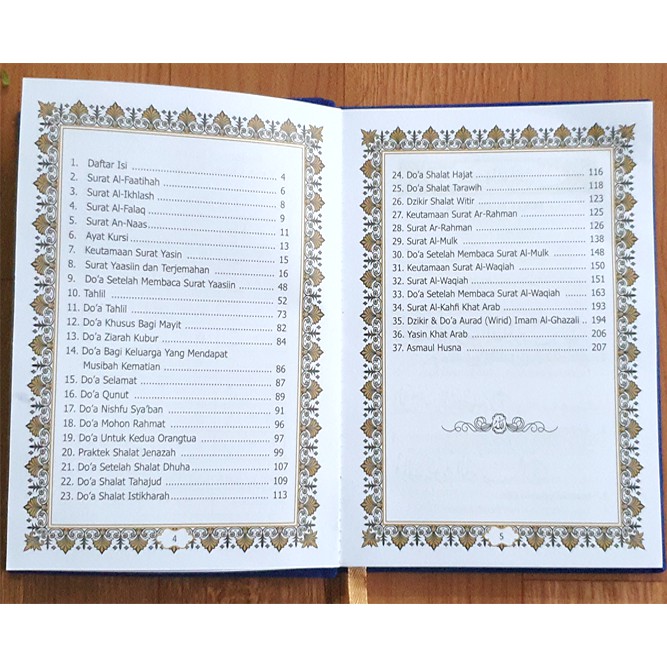 1. Daftar Isi ........ 4
2. Surat Al-Faatihah ........ 6
3. Surat Al-Ikhlash ........ 8
4. Surat Al-Falaq ........ 9
5. Surat An-Naas ........ 11
6. Ayat Kursi ........ 13
7. Keutamaan Surat Yasin ........ 15
8. Surat Yaasiin dan Terjemahan ........ 16
9. Do'a Setelah Membaca Surat Yaasiin ........ 48
10. Tahlil ........ 52
11. Do'a Tahlil ........ 73
12. Do'a Khusus Bagi Mayit ........ 82
13. Do'a Ziarah Kubur ........ 84
14. Do'a Bagi Keluarga Yang Mendapat
Musibah Kematian ........ 86
15. Do'a Selamat ........ 87
16. Do'a Qunut ........ 89
17. Do'a Nishfu Sya'ban ........ 91
18. Do'a Mohon Rahmat ........ 96
19. Do'a Untuk Kedua Orangtua ........ 97
20. Praktek Shalat Jenazah ........ 99
21. Do'a Setelah Shalat Dhuha ........ 107
22. Do'a Shalat Tahajud ........ 109
23. Do'a Shalat Istikharah ........ 113
4
24. Do'a Shalat Hajat ........ 116
25. Do'a Shalat Tarawih ........ 118
26. Dzikir Shalat Witir ........ 123
27. Keutamaan Surat Ar-Rahman ........ 125
28. Surat Ar-Rahman ........ 126
29. Surat Al-Mulk ........ 138
30. Do'a Setelah Membaca Surat Al-Mulk ........ 148
31. Keutamaan Surat Al-Waqiah ........ 150
32. Surat Al-Waqiah ........ 151
33. Do'a Setelah Membaca Surat Al-Waqiah ........ 163
34. Surat Al-Kahfi Khat Arab ........ 193
35. Dzikir & Do'a Aurad (Wirid) Imam Al-Ghazali .. 194
36. Yasin Khat Arab ........ 206
37. Asmaul Husna ........ 207
الله
5